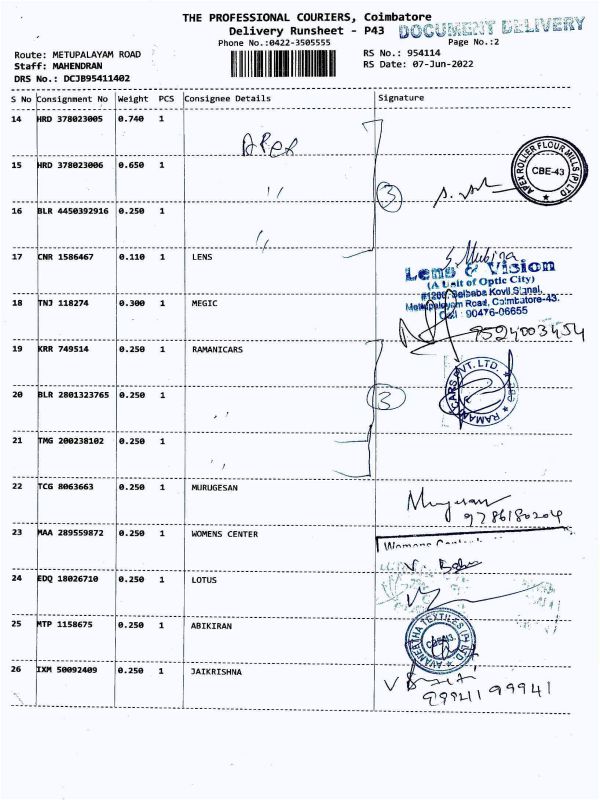 THE PROFESSIONAL COURIERS, Coimbatore
Delivery Runsheet - P43 DOCUMENT DELIVERY
Phone No.:0422-3505555 Page No.:2
Route: METUPALAYAM ROAD RS No.: 954114
Staff: MAHENDRAN RS Date: 07-Jun-2022
DRS No.: DCJB95411402
S No Consignment No Weight PCS Consignee Details Signature
14 HRD 378023005 0.740 1
Apex
APEX ROLLER FLOUR MILLS (P) LTD
CBE-43
15 HRD 378023006 0.650 1
" 3
16 BLR 4450392916 0.250 1
"
17 CNR 1586467 0.110 1 LENS
S. Mubina
Lens & Vision
(A Unit of Optic City)
#1200, Saibaba Kovil Signal,
Mettupalayam Road, Coimbatore-43.
Cell : 90476-06655
18 TNJ 118274 0.300 1 MEGIC
9524003454
19 KRR 749514 0.250 1 RAMANICARS
RAMANI CARS PVT. LTD.
20 BLR 2801323765 0.250 1 3
"
21 TMG 200238102 0.250 1
"
22 TCG 8063663 0.250 1 MURUGESAN
Murugesan
9786180204
23 MAA 289559872 0.250 1 WOMENS CENTER
Womens
V. Babu
24 EDQ 18026710 0.250 1 LOTUS
25 MTP 1158675 0.250 1 ABIKIRAN
TEXTILES (P) LTD
26 IXM 50092409 0.250 1 JAIKRISHNA
9994199941